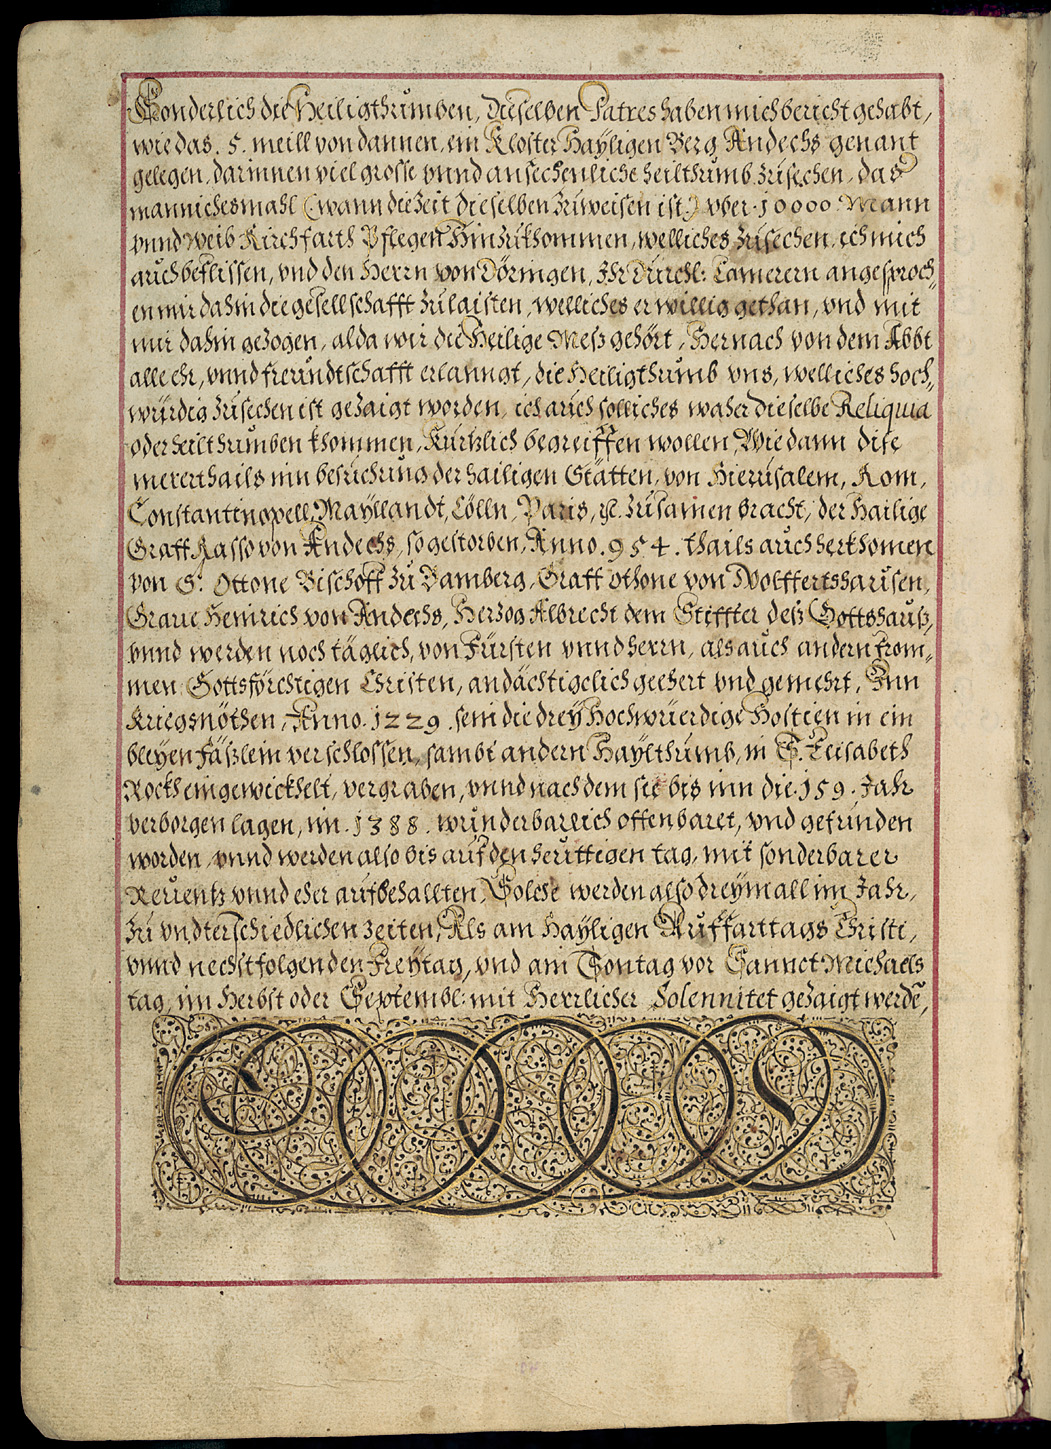 Sonderlich die Heiligthumben, dieselben Patres haben mich bericht gehabt,
wie das . 5 . meill von dannen, ein Kloster Hayligen Berg Andechs genant
gelegen, darinnen viel grosse vnnd ansechenliche heilthumb zusechen, das
mannichesmahl (wann die Zeit dieselben zuweisen ist) vber . 10000 . Mann
vnnd Weib Kirchfarth Pflegen hinzukhommen, welliches zusechen, ich mich
auch beflissen, vnd den Herrn von Döringen, Ihr Durchl: Camerern angesproch,,
en mir dahin die gesellschafft zulaisten, welliches er willig gethan, vnd mit
mir dahin gezogen, alda wir die Heilige Meß gehört, Hernach von dem Abbt
alle ehr, vnnd freundtschafft erlanngt, die Heiligthumb vns, welliches hoch,,
würdig zusechen ist gezaigt worden, ich auch solliches waher dieselbe Reliquia
oder heilthumben khommen, Kurtzlich begreiffen wollen, Wie dann dise
merertheils inn besuchung der hailigen Stätten, von Hierusalem, Rom,
Constantinopell, Mayllandt, Cölln, Paris, ꝛc. zusamen bracht, der Hailige
Graff Rasso von Andechs, so gestorben, Anno . 954 . thails auch herkhomen
von S. Ottone Bischoff zu Bamberg, Graff Othone von Wolffertshausen,
Graue Heinrich von Andechs, Herzog Albrecht dem Stiffter deß Gottshauß,
vnnd werden noch täglich, von Fürsten vnnd herrn, als auch andern from,,
men Gottsförchtigen Christen, andächtigelich geehert vnd gemehrt, Inn
Kriegsnöthen, Anno . 1229 . sein die drey Hochwüerdige Hostien in ein
bleyen Fäßlein verschlossen, sambt andern Haylthumb, in S. Elisabeth
Rockh eingewickhelt, vergraben, vnnd nach dem sie bis inn die . 159 . Jahr
verborgen lagen, im . 1388 . wunderbarlich offenbaret, vnd gefunden
worden, vnnd werden also bis auf den heuttigen tag, mit sonderbarer
Reuentz vnnd eher aufbehallten, Solche werden also dreymall im Jahr,
zu vndterschiedlichen zeiten, Als am Hayligen Auffarttags Christi,
vnnd nechstfolgenden Freytag, vnd am Sontag vor Sannct Michaels
tag, im Herbst oder Septembl: mit Herrlicher Solennitet gezaigt werdē,